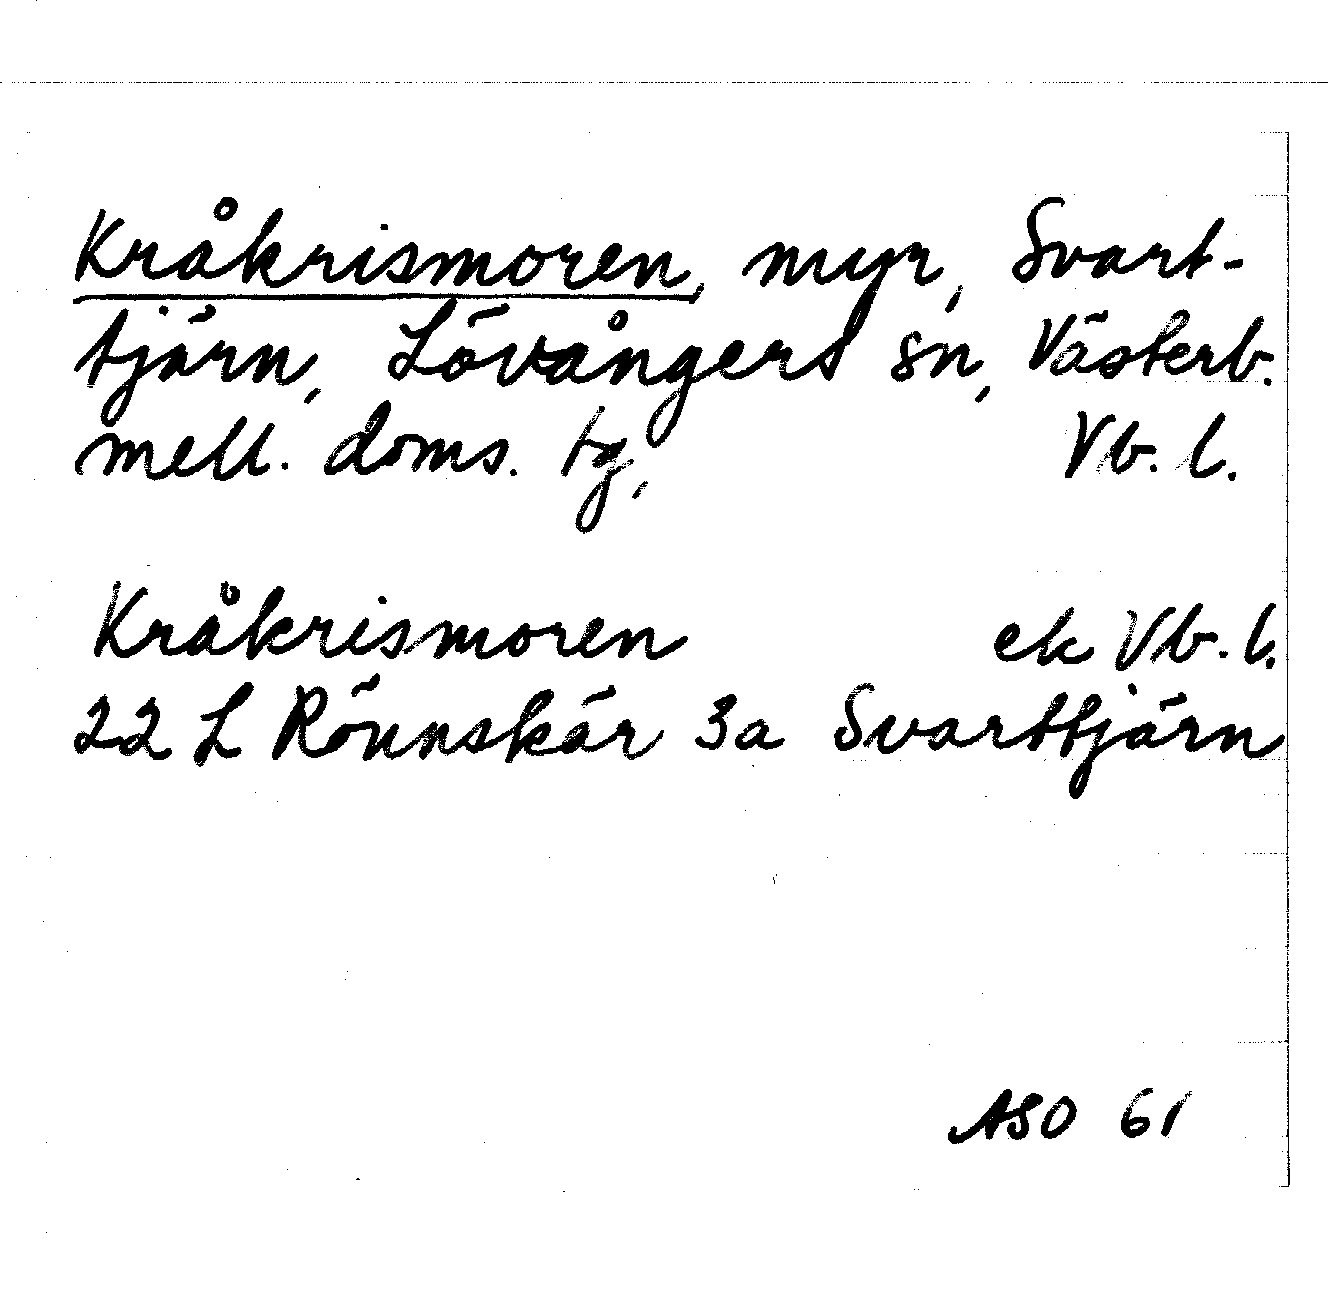 Kråkrismoren, myr, Svart-
tjärn, Lövångers sn, Västerb.
mell. doms. tg, Vb. l.
Kråkrismoren ek Vb. l.
22 L Rönnskär 3a Svarttjärn
ASO 61